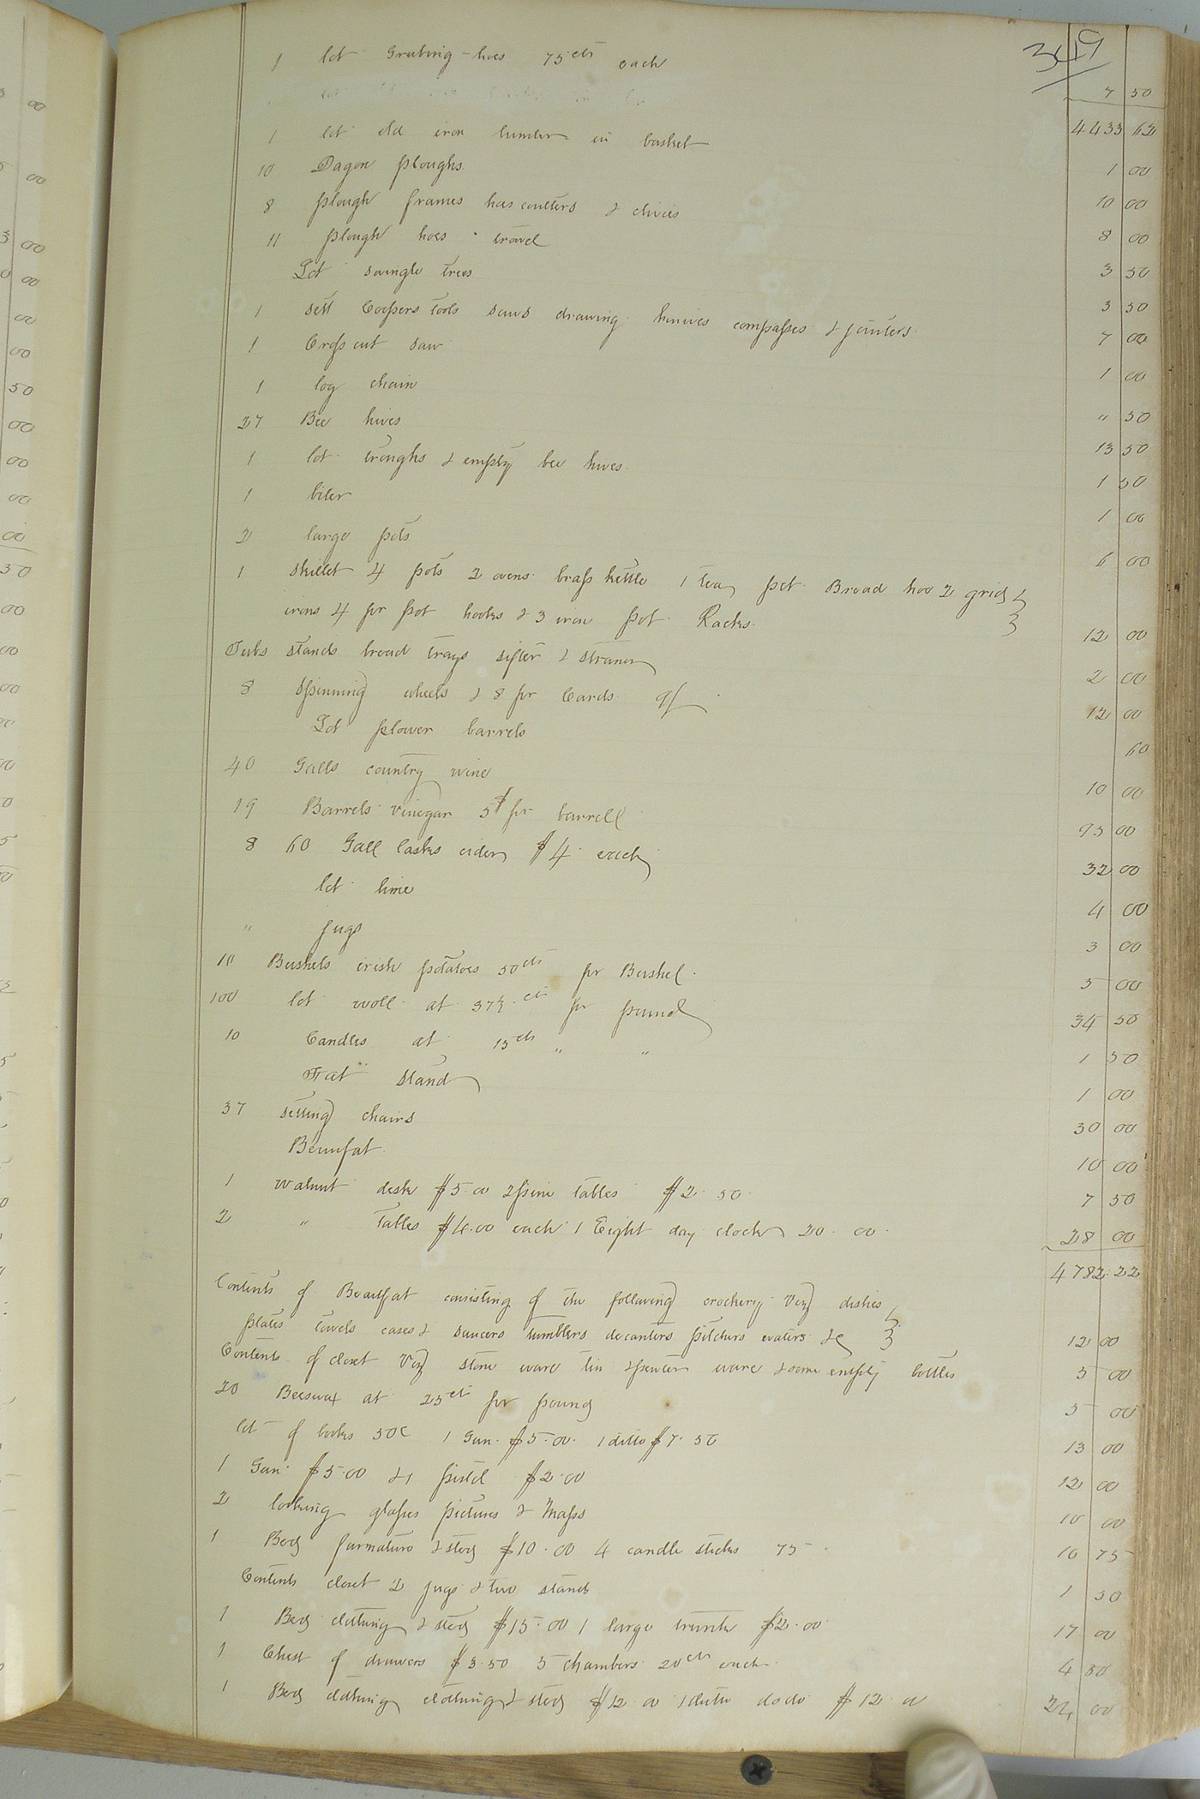 349
1 lot Grubing hoes 75 cts each 7 50
4433 62
1 lot old iron lumber in basket 1 00
10 Dagon ploughs 10 00
8 plough frames has coulters & clivies 8 00
11 plough hoes 3 50
Lot swingle trees 3 50
1 sett Coopers tools saws drawing knives compasses & jointers 7 00
1 Cross cut saw 1 00
1 log chain " 50
27 Bee hives 13 50
1 lot troughs & empty bee hives 1 50
1 1 00
2 large pots 6 00
1 skillet 4 pots 2 ovens brass kettle 1 tea pot Broad hoe 2 grid
irons 4 pr pot hooks & 3 iron pot Racks 12 00
Tubs stands bread trays sifter & strainer 2 00
8 spinning wheels & 8 pr Cards 12 00
Lot flower barrels 60
40 Galls country wine 10 00
19 Barrels vinegar 5$ pr barrell 95 00
8 60 Gall casks cider $4 each 32 00
lot lime 4 00
" jugs 3 00
10 Bushels irish potatoes 50 cts pr Bushel 5 00
100 lot woll at 37½ cts pr pound 34 50
10 Candles at 15 cts " " 1 50
Fat stand 1 00
37 setting chairs 30 00
Beaufat 10 00
1 walnut desk $5.00 2 pine tables $2 50 7 50
2 " Tables $4.00 each 1 Eight day clock 20 00 28 00
4782 22
Contents of Beaufat consisting of the following crockery Viz dishes
plates bowels cases & saucers tumblers decanters pitchers waiters &c 12 00
Contents of closet Viz stone ware tin & pewter ware & some empty bottles 5 00
20 Beeswax at 25 cts pr pound 5 00
lot of books 50c 1 Gun $5.00 1 ditto $7.50 13 00
1 Gun $5.00 & 1 pistol $2.00 12 00
2 looking glasses pictures & Mapss 10 00
1 Bed furnature & sted $10.00 4 candle sticks 75 10 75
Contents closet 2 jugs & two stands 1 50
1 Bed clothing & sted $15.00 1 large trunk $2.00 17 00
1 Chest of drawers $3.50 5 chambers 20 cts each 4 50
1 Bed clothing clothing & sted $12 00 1 ditto do do $12 00 24 00